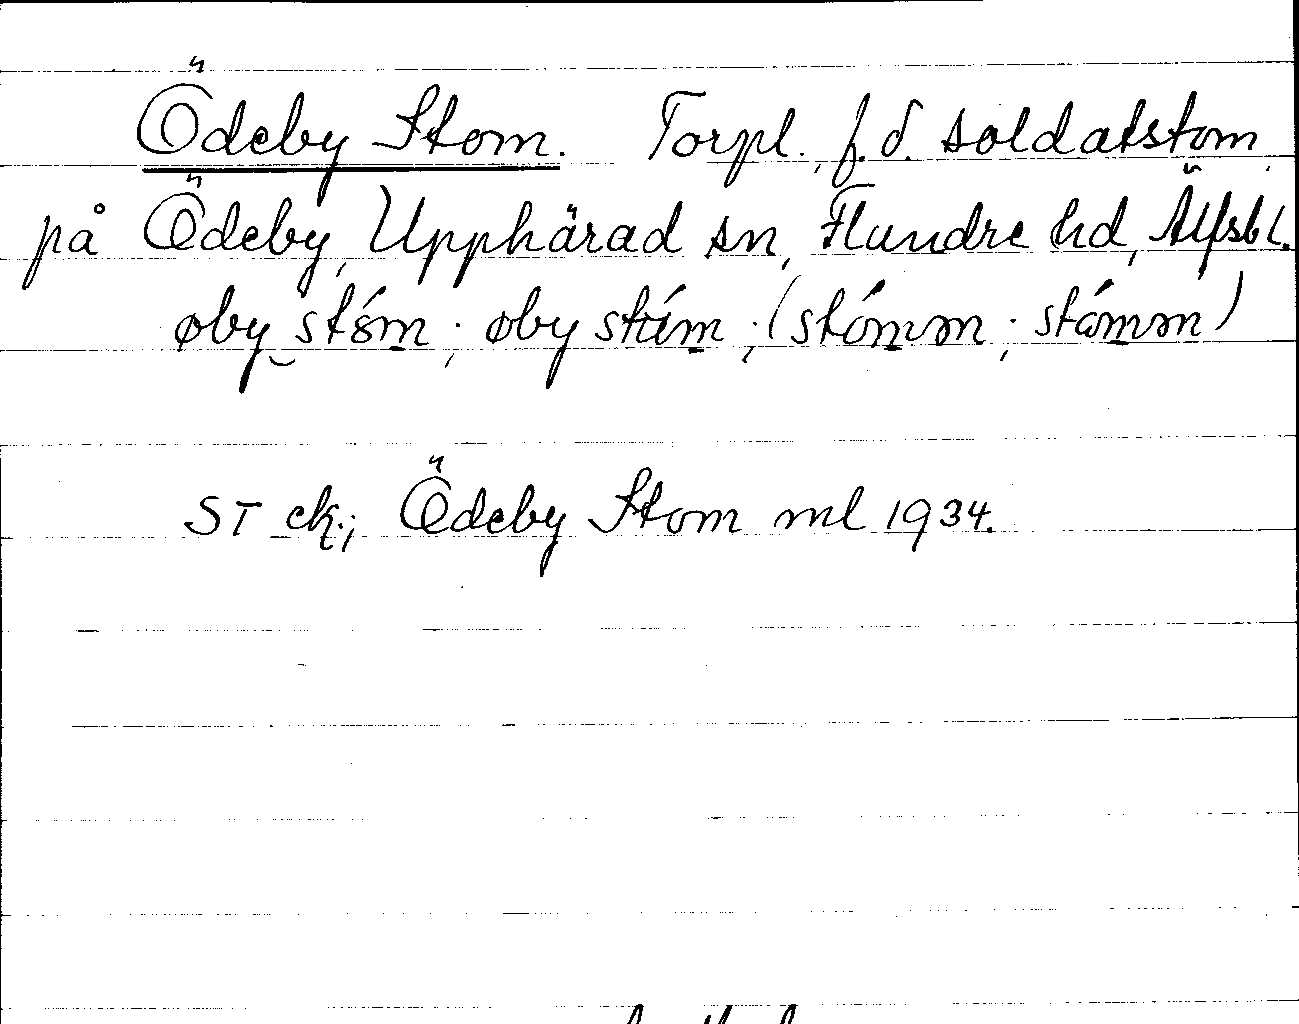 Ödeby Stom. Torpl., f.d. soldatstom
på Ödeby, Upphärad sn, Flundre hd, Älfsbl.
øby stóm; øby stúm; (stómm; stómm)
ST ek.; Ödeby Stom ml 1934.